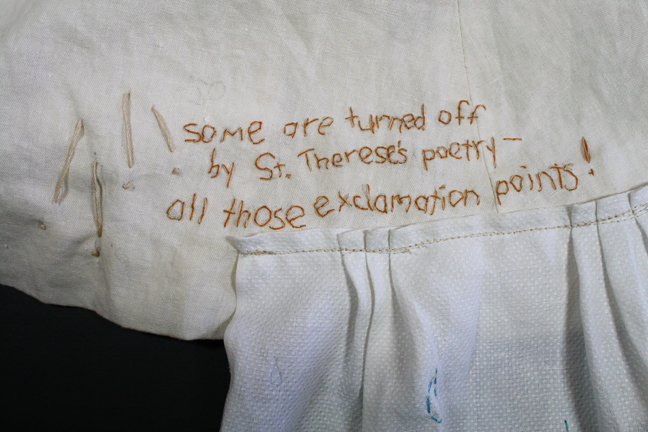 some are turned off
by St. Therese's poetry—
all those exclamation points!